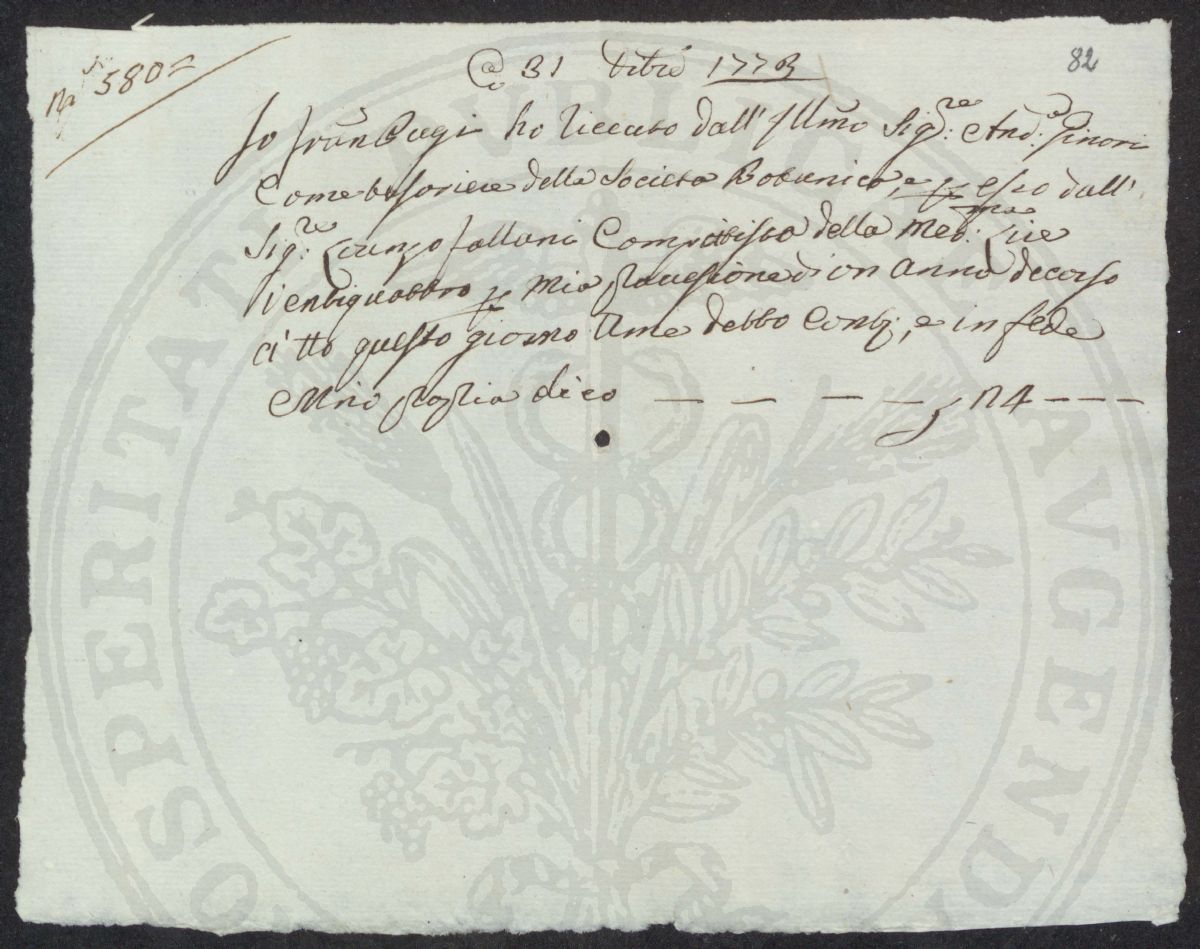 N° 580
82
A dì 31 Xbre 1773
Io Fran: Bugi ho riceuto dall' Illmo Sig:re And:a Ginori
Come tesoriere della Societa Botanica, e p esso dall'
Sig:re Lorenzo Fallani Computista della Med:ma Lire
Ventiquattro p mia provisione di un anno decorso
a tto questo giorno a me detto Cont;, e in fede
Mno propria dico — — — — £ 24 — — —
PROSPERITATI PVBLICAE AVGENDAE